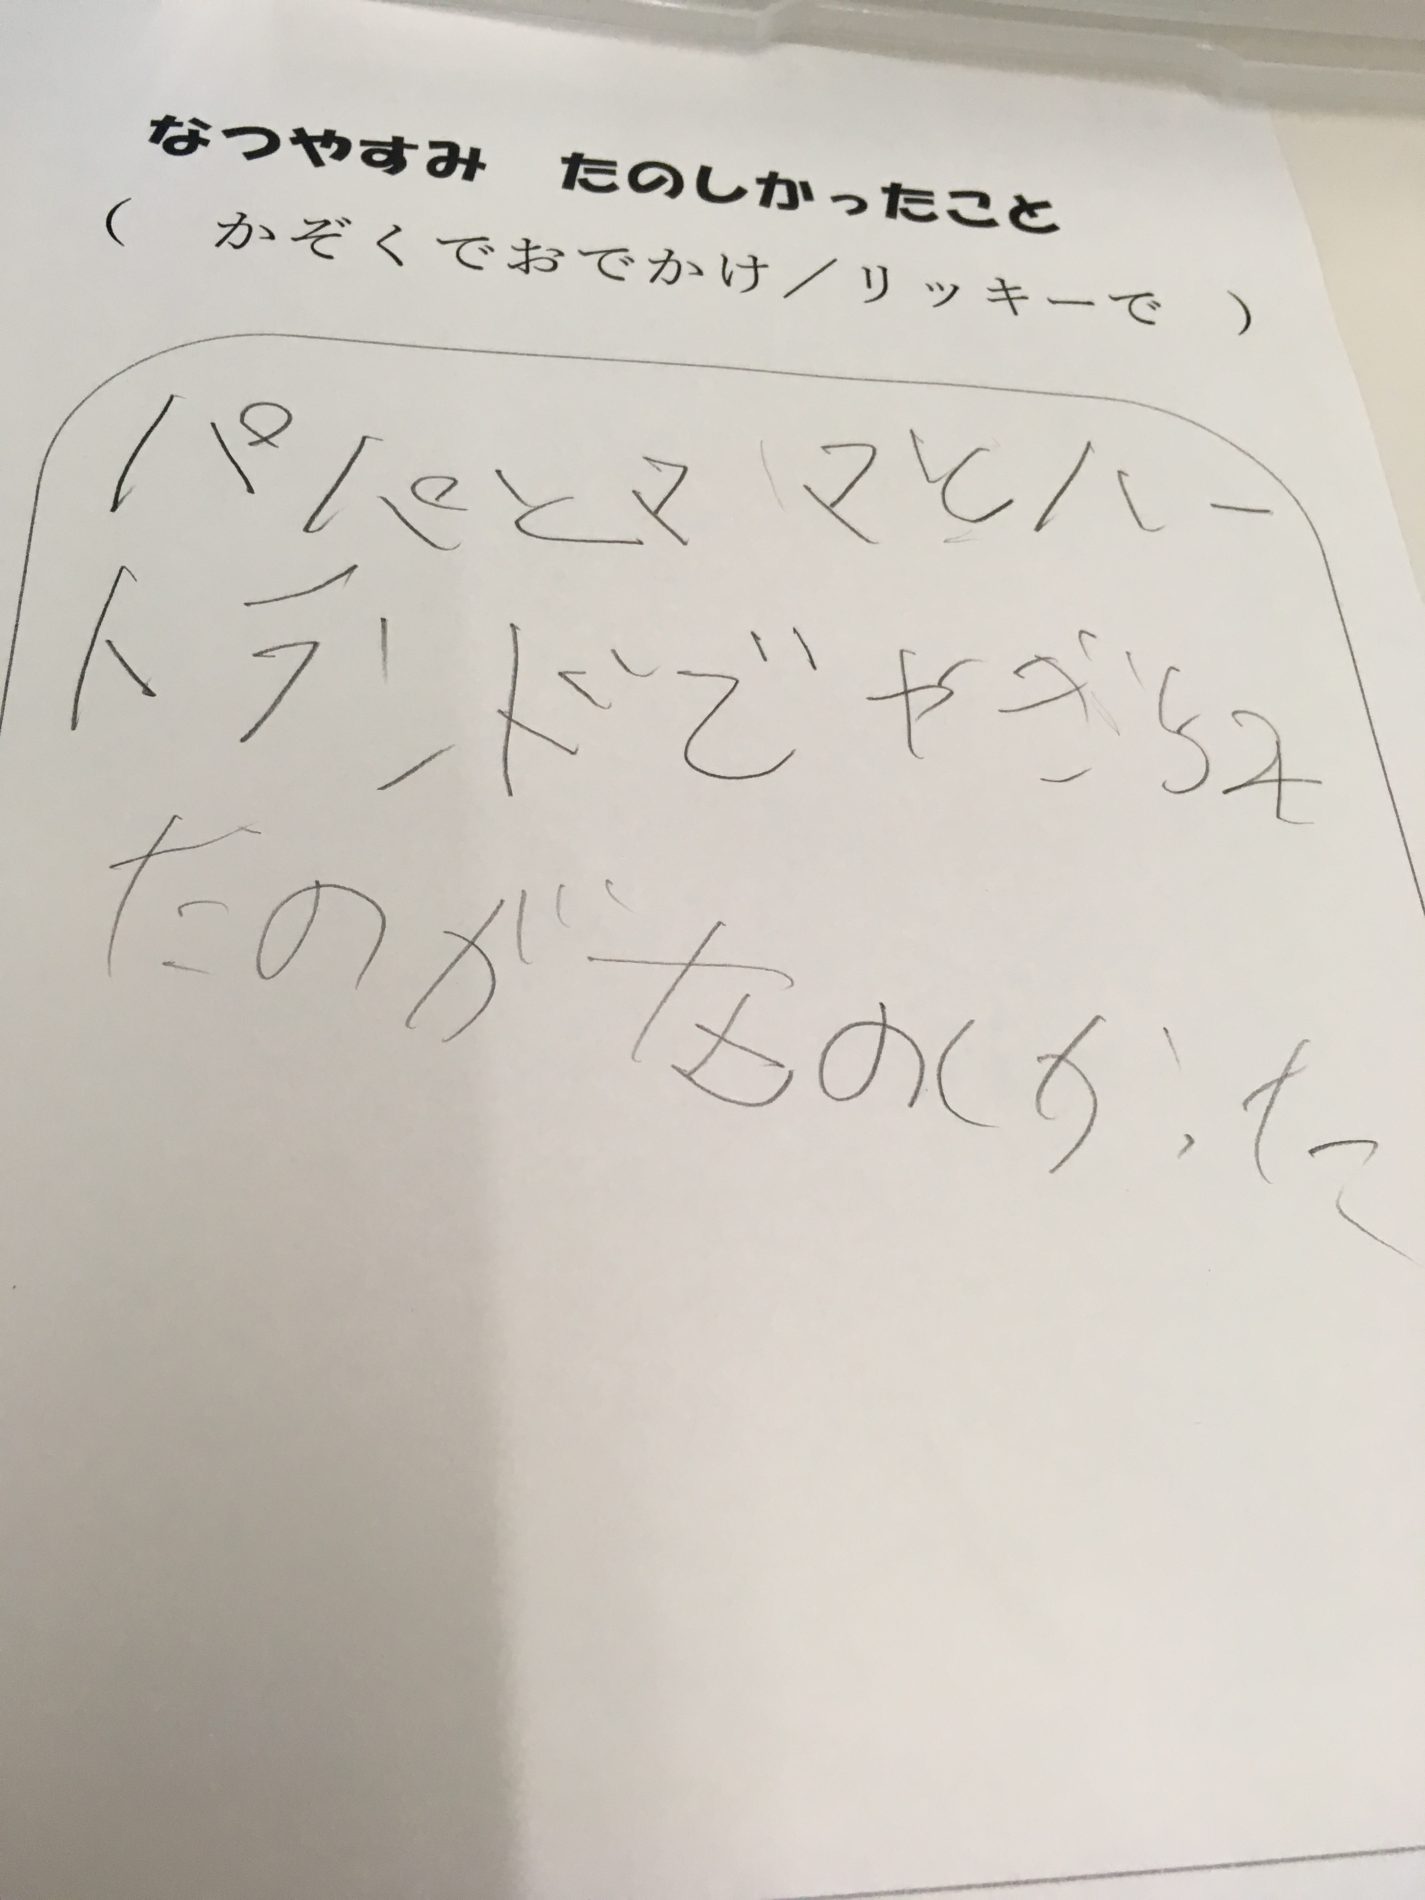 なつやすみ　たのしかったこと
（　かぞくでおでかけ／リッキーで　）
パパとママとハー
トランドでやぎ
たのがたのしかった